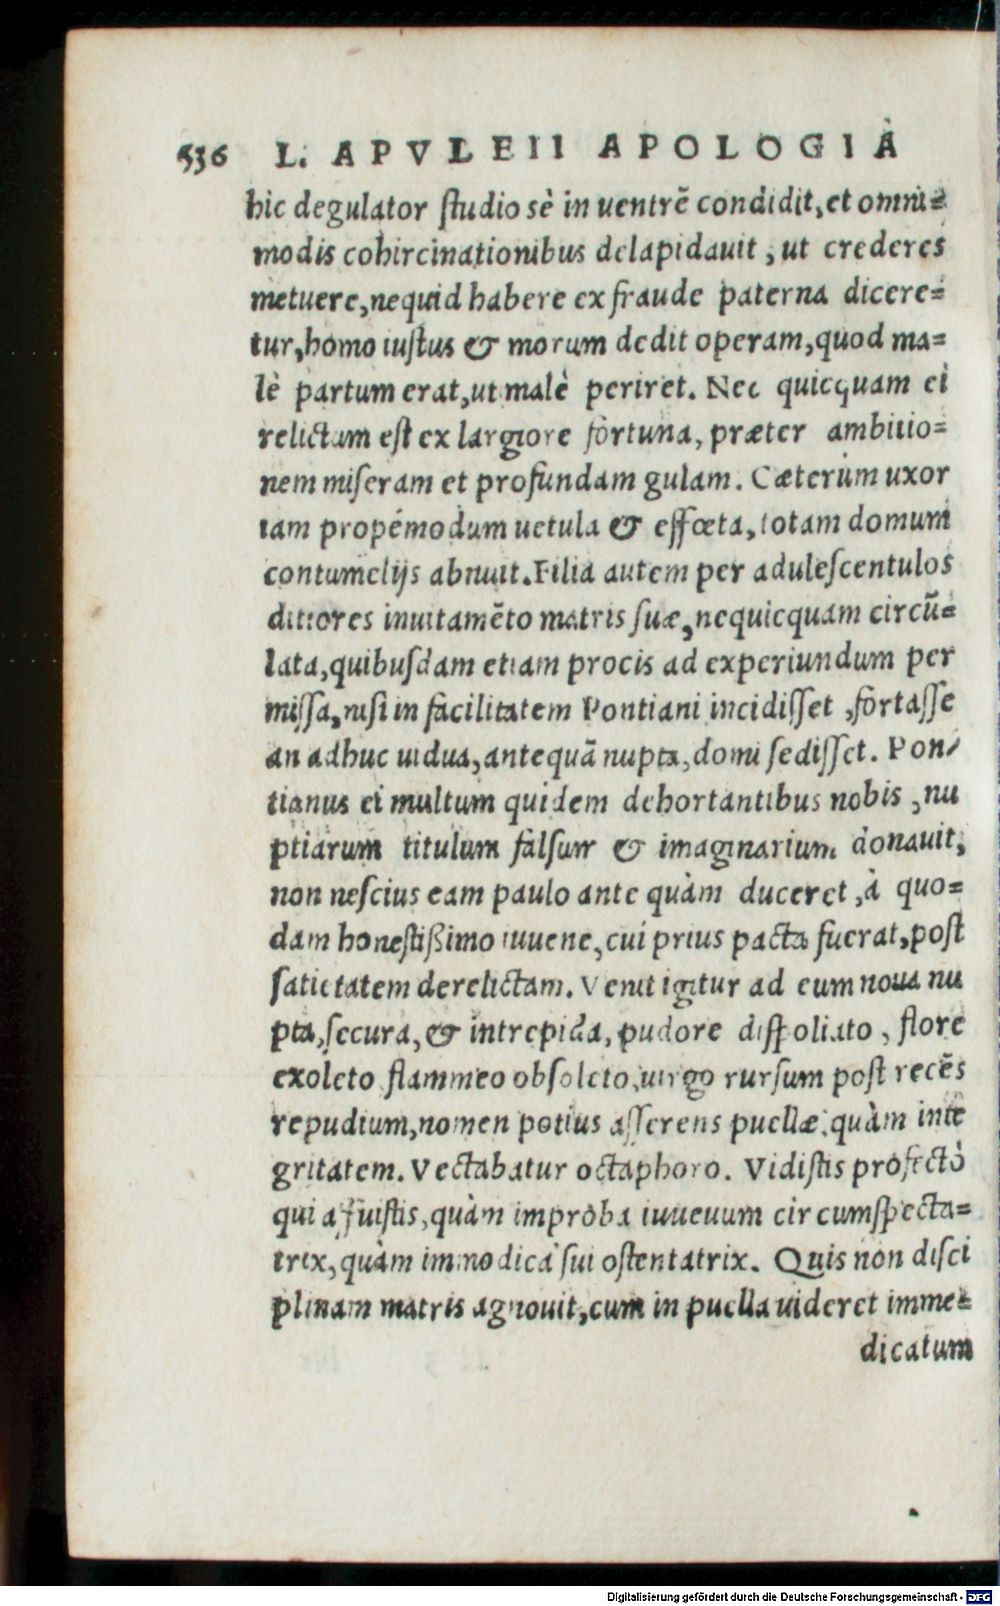 536 L. APVLEII APOLOGIA
hic degulator studio sè in uentrē condidit, et omni=
modis cohircinationibus delapidauit, ut crederes
metuere, nequid habere ex fraude paterna dicere=
tur, homo iustus & morum dedit operam, quod ma=
lè partum erat, ut malè periret. Nec quicquam ei
relictum est ex largiore fortuna, præter ambitio=
nem miseram et profundam gulam. Cæterùm uxor
iam propémodum uetula & effœta, totam domum
contumelijs abnuit. Filia autem per adulescentulos
ditiores inuitamēto matris suæ, nequicquam circū=
lata, quibusdam etiam procis ad experiundum per
missa, nisi in facilitatem Pontiani incidisset, fortasse
an adhuc uidua, antequā nupta, domi sedisset. Pon/
tianus ei multum quidem dehortantibus nobis, nu
ptiarum titulum falsum & imaginarium donauit,
non nescius eam paulo ante quàm duceret, à quo=
dam honestißimo iuuene, cui prius pacta fuerat, post
satietatem derelictam. Venit igitur ad eum noua nu
pta, secura, & intrepida, pudore dispoliato, flore
exoleto flammeo obsoleto, uirgo rursum post recēs
repudium, nomen potius asserens puellæ, quàm inte
gritatem. Vectabatur octaphoro. Vidistis profectò
qui affuistis, quàm improba iuueuum circumspecta=
trix, quàm immodica sui ostentatrix. Quis non disci
plinam matris agnouit, cum in puella uideret imme=
dicatum
Digitalisierung gefördert durch die Deutsche Forschungsgemeinschaft - DFG